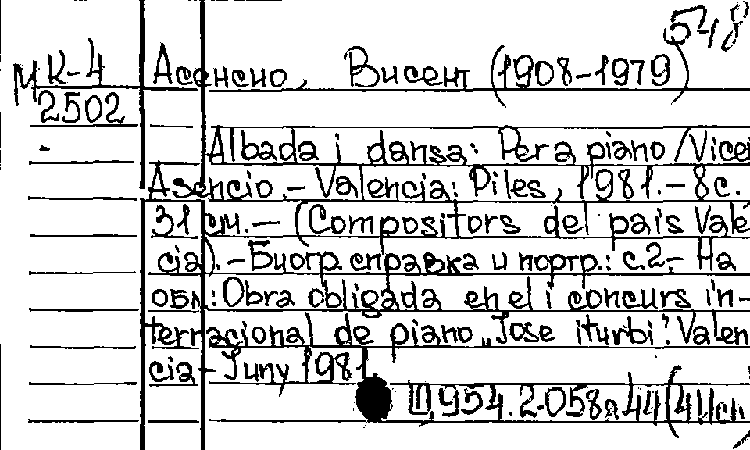 548
МК-4 Асенсио, Висент (1908-1979)
2502
Albada i dansa: Per a piano / Vice
Asencio. – Valencia: Piles, 1981. – 8с.
31 см. – (Compositors del pais Vale
cia). – Биогр. справка и портр.: с.2. – На
обл.: Obra obligada en el i concurs in-
ternacional de piano „Jose iturbi". Valen
cia – Juny 1981.
Щ954.2-058я44